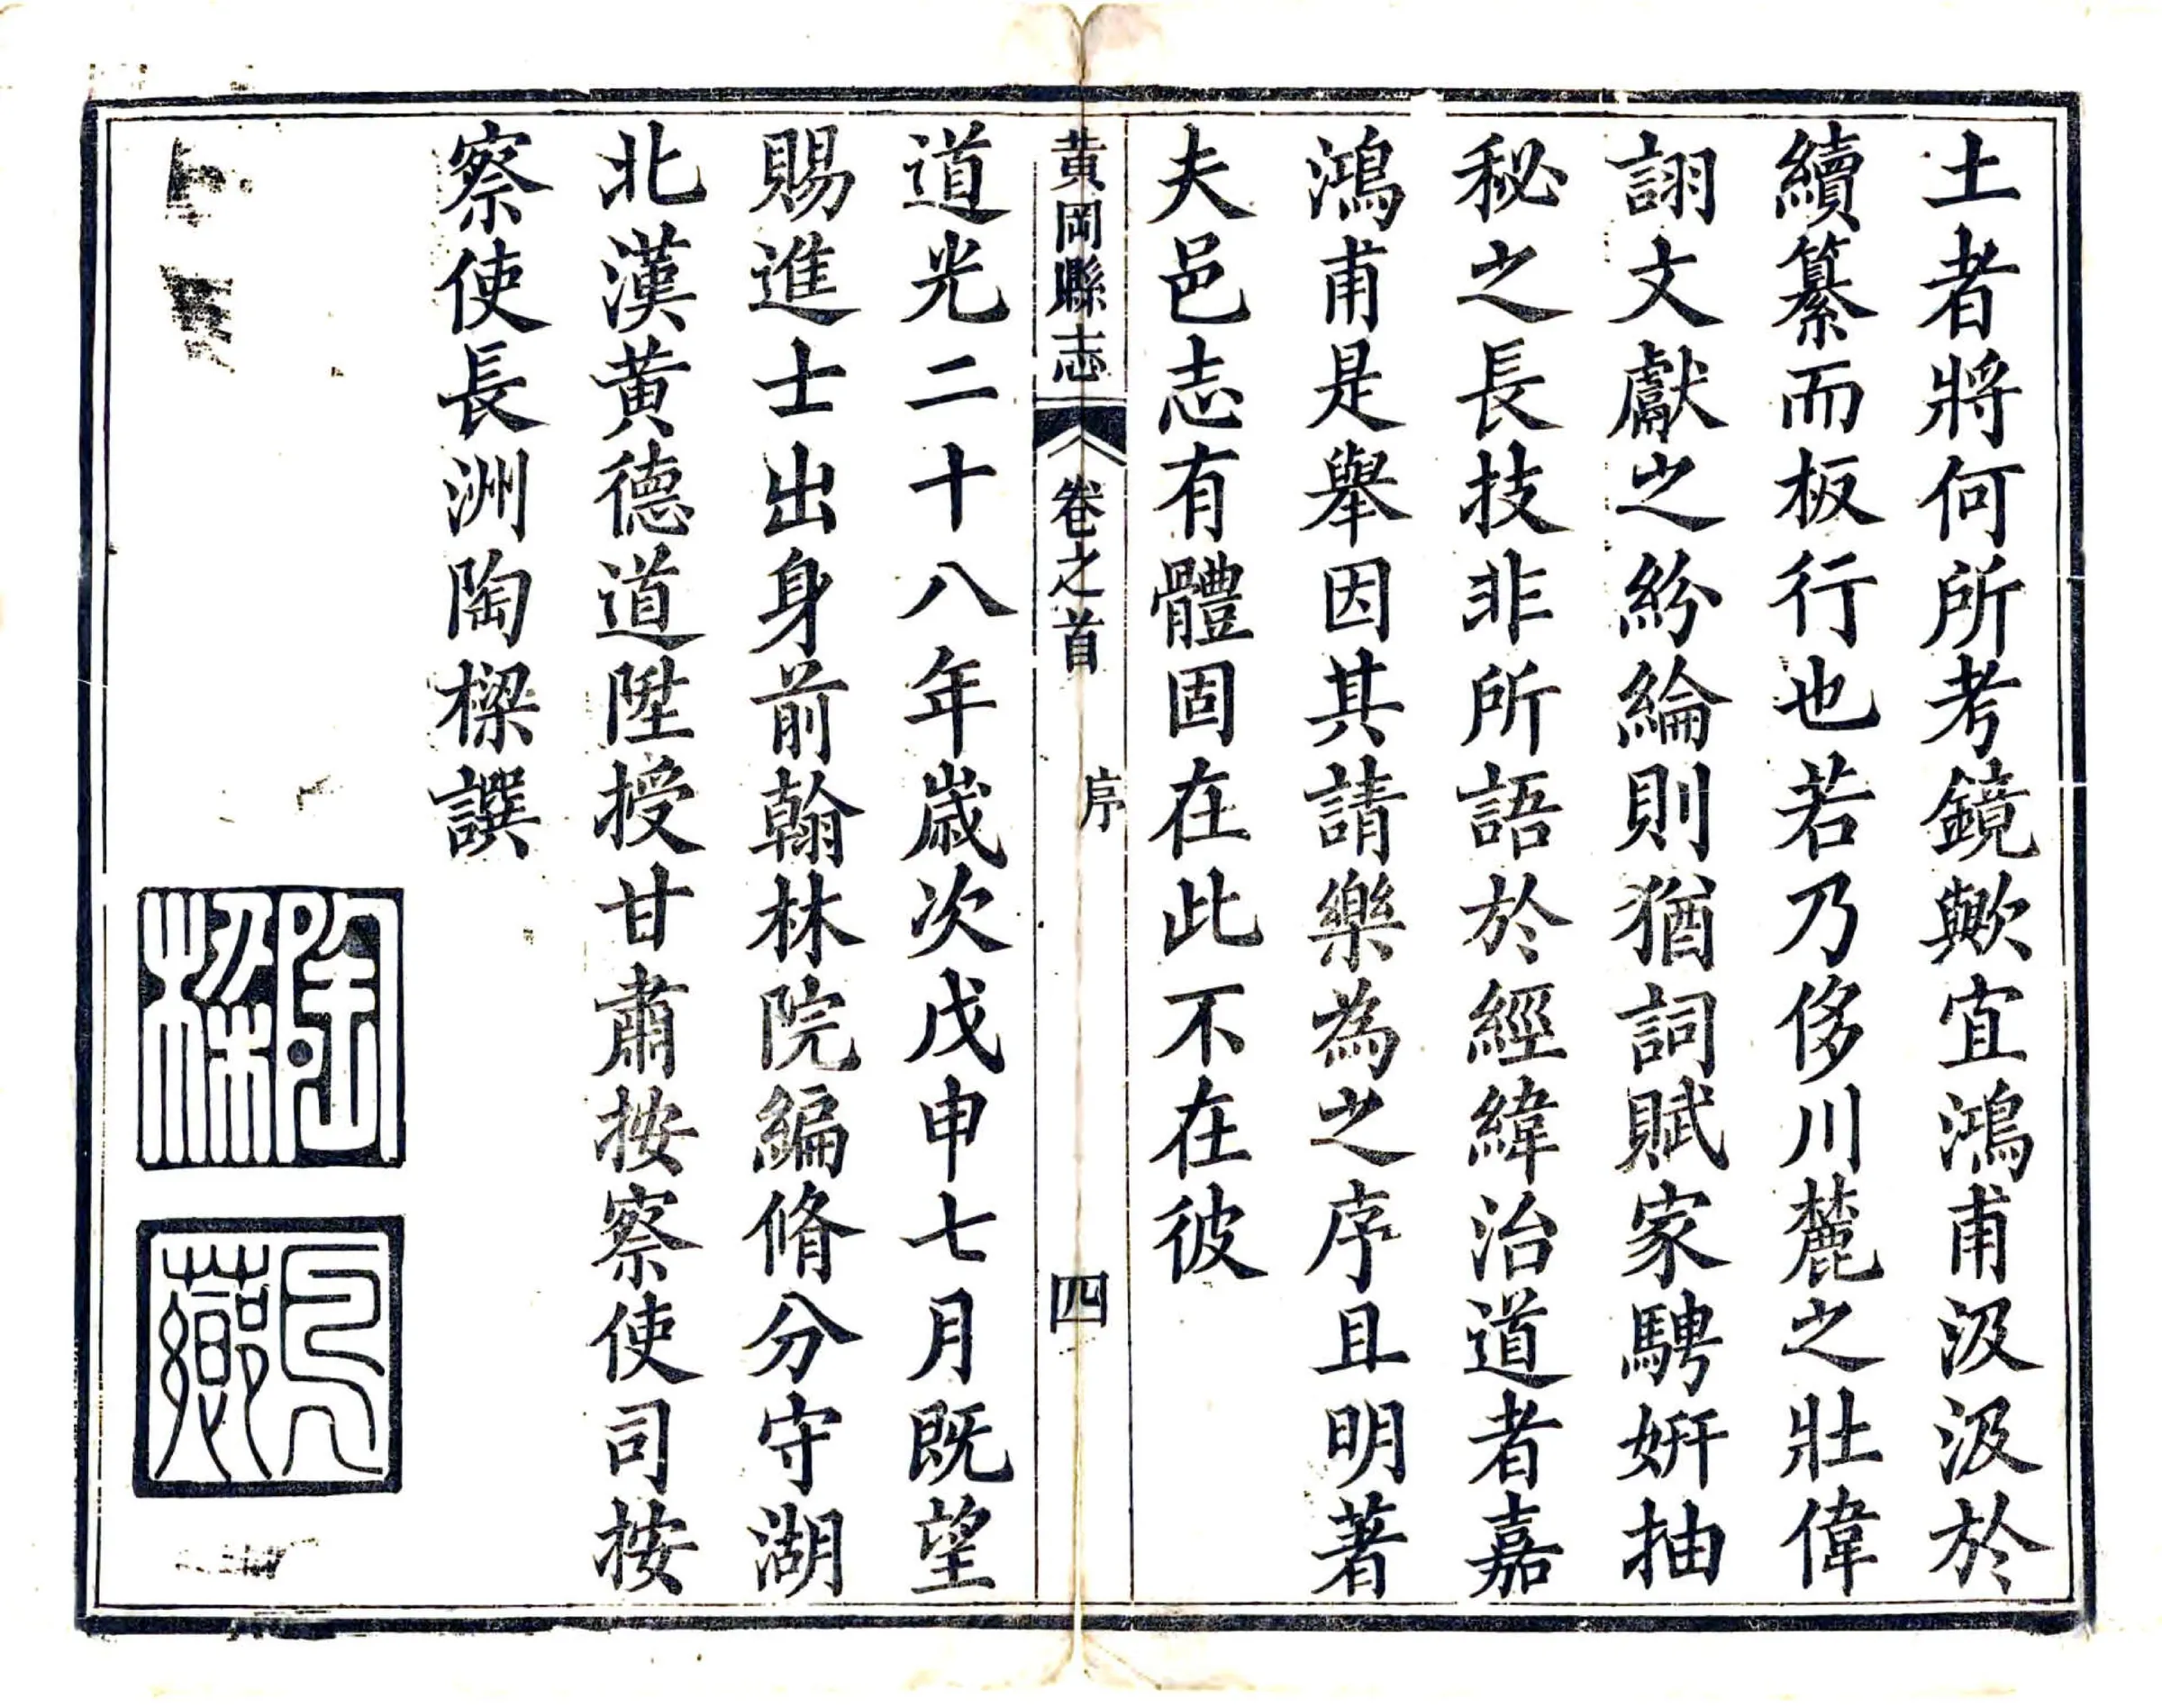 土者將何所考鏡歟宜鴻甫汲汲於
續纂而板行也若乃侈川麓之壯偉
詡文獻之紛綸則猶詞賦家騁妍抽
秘之長技非所語於經緯治道者嘉
鴻甫是舉因其請樂為之序且明著
夫邑志有體固在此不在彼
黃岡縣志 卷之首 序 四
道光二十八年歲次戊申七月既望
賜進士出身前翰林院編脩分守湖
北漢黃德道陞授甘肅按察使司按
察使長洲陶樑譔
陶樑
鳧薌